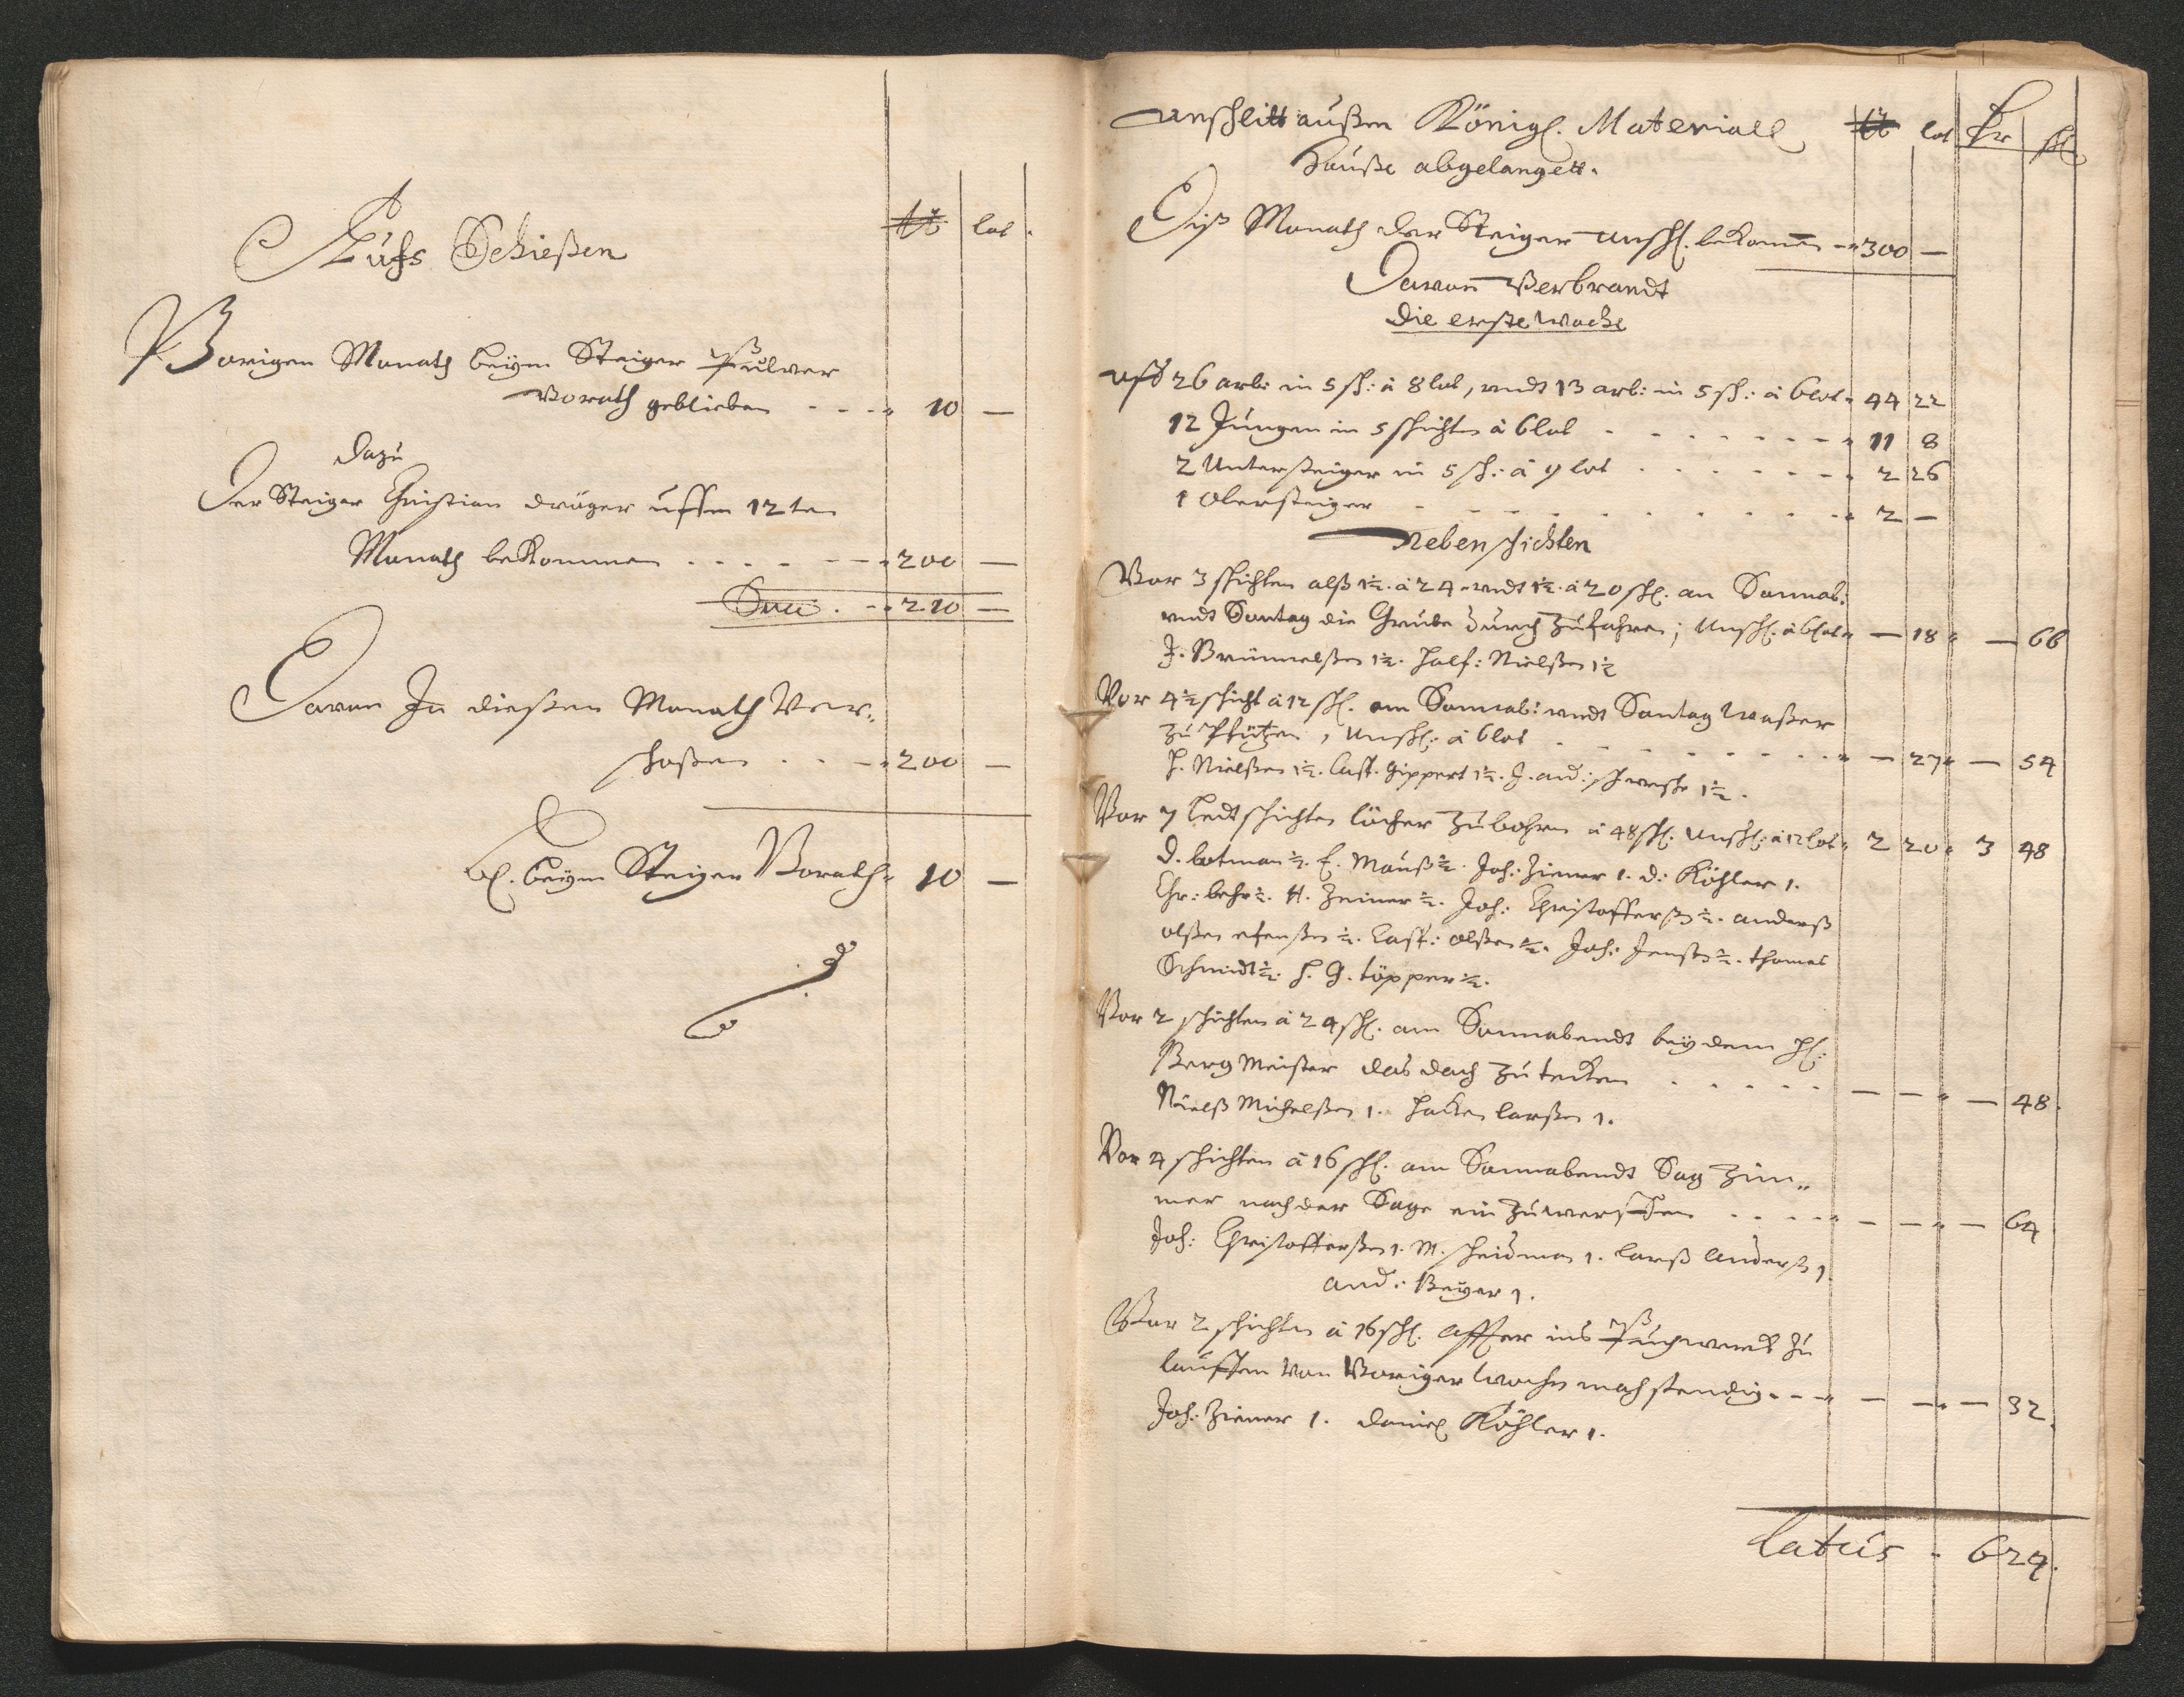 ℔ lot
Aufs Schießen
Vorigen Monath beym Steiger Pulver
Vorath geblieben - - - 10 —
Dazu
Der Steiger Christian dräger uffen 12ten
Monath bekommen - - - 200 —
Sum̄a. - - 210 —
Davon In dießen Monath Ver„
schoßen - - - 200 —
Bl. beym Steiger Vorath 10 —
Unschlitt außen Königl. Materiall ℔ lot Rr ßl.
Hauße abgelanget.
Diß Monath der Steiger Unschl. bekomen - 300 —
Davon Verbrandt
Die erste Woche
Uff 26 arb: in 5 sch: à 8 lot, undt 13 arb: in 5 sch: à 6 lot 44 22
12 Jungen in 5 schichten à 6 lot - - - 11 8
2 Untersteiger in 5 sch: à 9 lot - - - 2 26
1 Obersteiger - - - 2 —
Neben schichten
Vor 3 schichten alß 1½. à 24 undt 1½. à 20 ßl. am Sonnab:
undt Sontag die Grube durch zufahren; Unschl. à 6 lot — 18 — 66
J. Brünnelßen 1½. Half: Nielßen 1½
Vor 4½ schicht à 12 ßl. am Sonnab: undt Sontag Waßer
zu Pfützen, Unschl: à 6 lot - - - — 27 — 54
H. Nielßen 1½. Cast. Gippert 1½. J. and: 1½.
Vor 7 Ledt schichten löcher zubohren à 48 ßl. Unschl: à 12 lot 2 20 3 48
D. Lotman ½. E. Mauß ½. Joh: Ziener 1. D: Köhler 1.
Chr: behr ½. H. Zeiner ½. Joh: Christofferß ½. anderß
olßen ½. Cast: olßen ½. Joh: Jenßen ½. thomas
Schmidt ½. H. G. töpper ½.
Vor 2 schichten à 24 ßl. am Sonnabendt bey dem Hl:
Berg Meister das dach zu tecken - - - — — — 48.
Nielß Michelßen 1. Hacken larßen 1.
Vor 4 schichten à 16 ßl. am Sonnabendt Sag Zim„
mer nach der Sage ein zuwerffen - - - — — — 64
Joh: Christofferßen 1. M. scheidman 1. larß Anderß 1.
And: Beyer 1.
Vor 2 schichten à 16 ßl. Affter ins Puchwerck zu
lauffen von Voriger Woche nachstendig - - - — — — 32.
Joh: Ziener 1. Daniel Köhler 1.
Latus - 6 24.